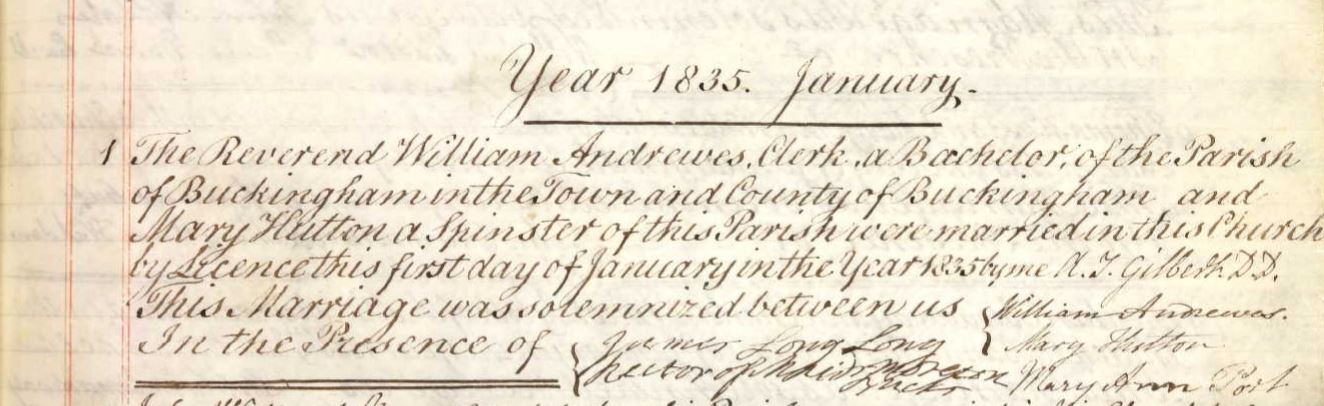 Year 1835. January.
1 The Reverend William Andrewes, Clerk, a Bachelor, of the Parish
of Buckingham in the Town and County of Buckingham and
Mary Hutton a Spinster of this Parish were married in this Church
by Licence this first day of January in the Year 1835 by me A. T. Gilbert D.D.
This Marriage was solemnized between us { William Andrewes.
Mary Hutton
In the Presence of { James Long Long
Rector of Maids Moreton
Bucks Mary Ann Port